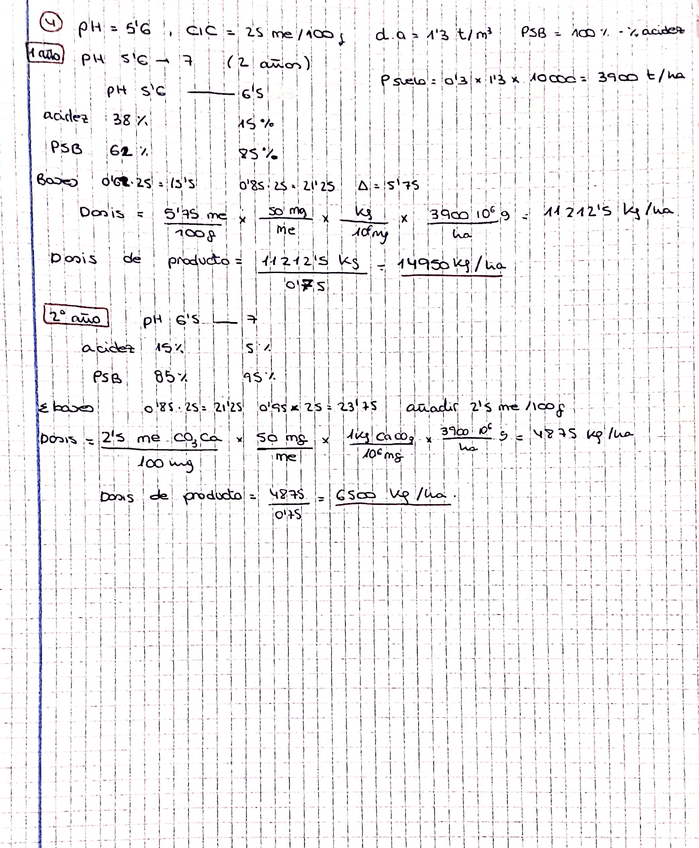 ④ pH = 5'6 , CIC = 25 me/100g d.a = 1'3 t/m³ PSB = 100% - % acidez
1 año pH 5'6 → 7 (2 años)
P suelo = 0'3 x 1'3 x 10000 = 3900 t/ha
pH 5'6 —— 6'5
acidez 38% 15%
PSB 62% 85%
Bases 0'62·25 = 15'5 0'85·25 = 21'25 Δ = 5'75
Dosis = 5'75 me / 100g x 50 mg / me x kg / 10⁶mg x 3900 10⁶ g / ha = 11212'5 kg/ha
Dosis de producto = 11212'5 kg / 0'75 = 14950 kg/ha
2º año pH 6'5 — 7
acidez 15% 5%
PSB 85% 95%
Σ bases 0'85·25 = 21'25 0'95 x 25 = 23'75 añadir 2'5 me/100g
Dosis = 2'5 me CO₃Ca / 100 mg x 50 mg / me x 1kg CaCO₃ / 10⁶mg x 3900 10⁶ / ha g = 4875 kg/ha
Dosis de producto = 4875 / 0'75 = 6500 kg/ha.